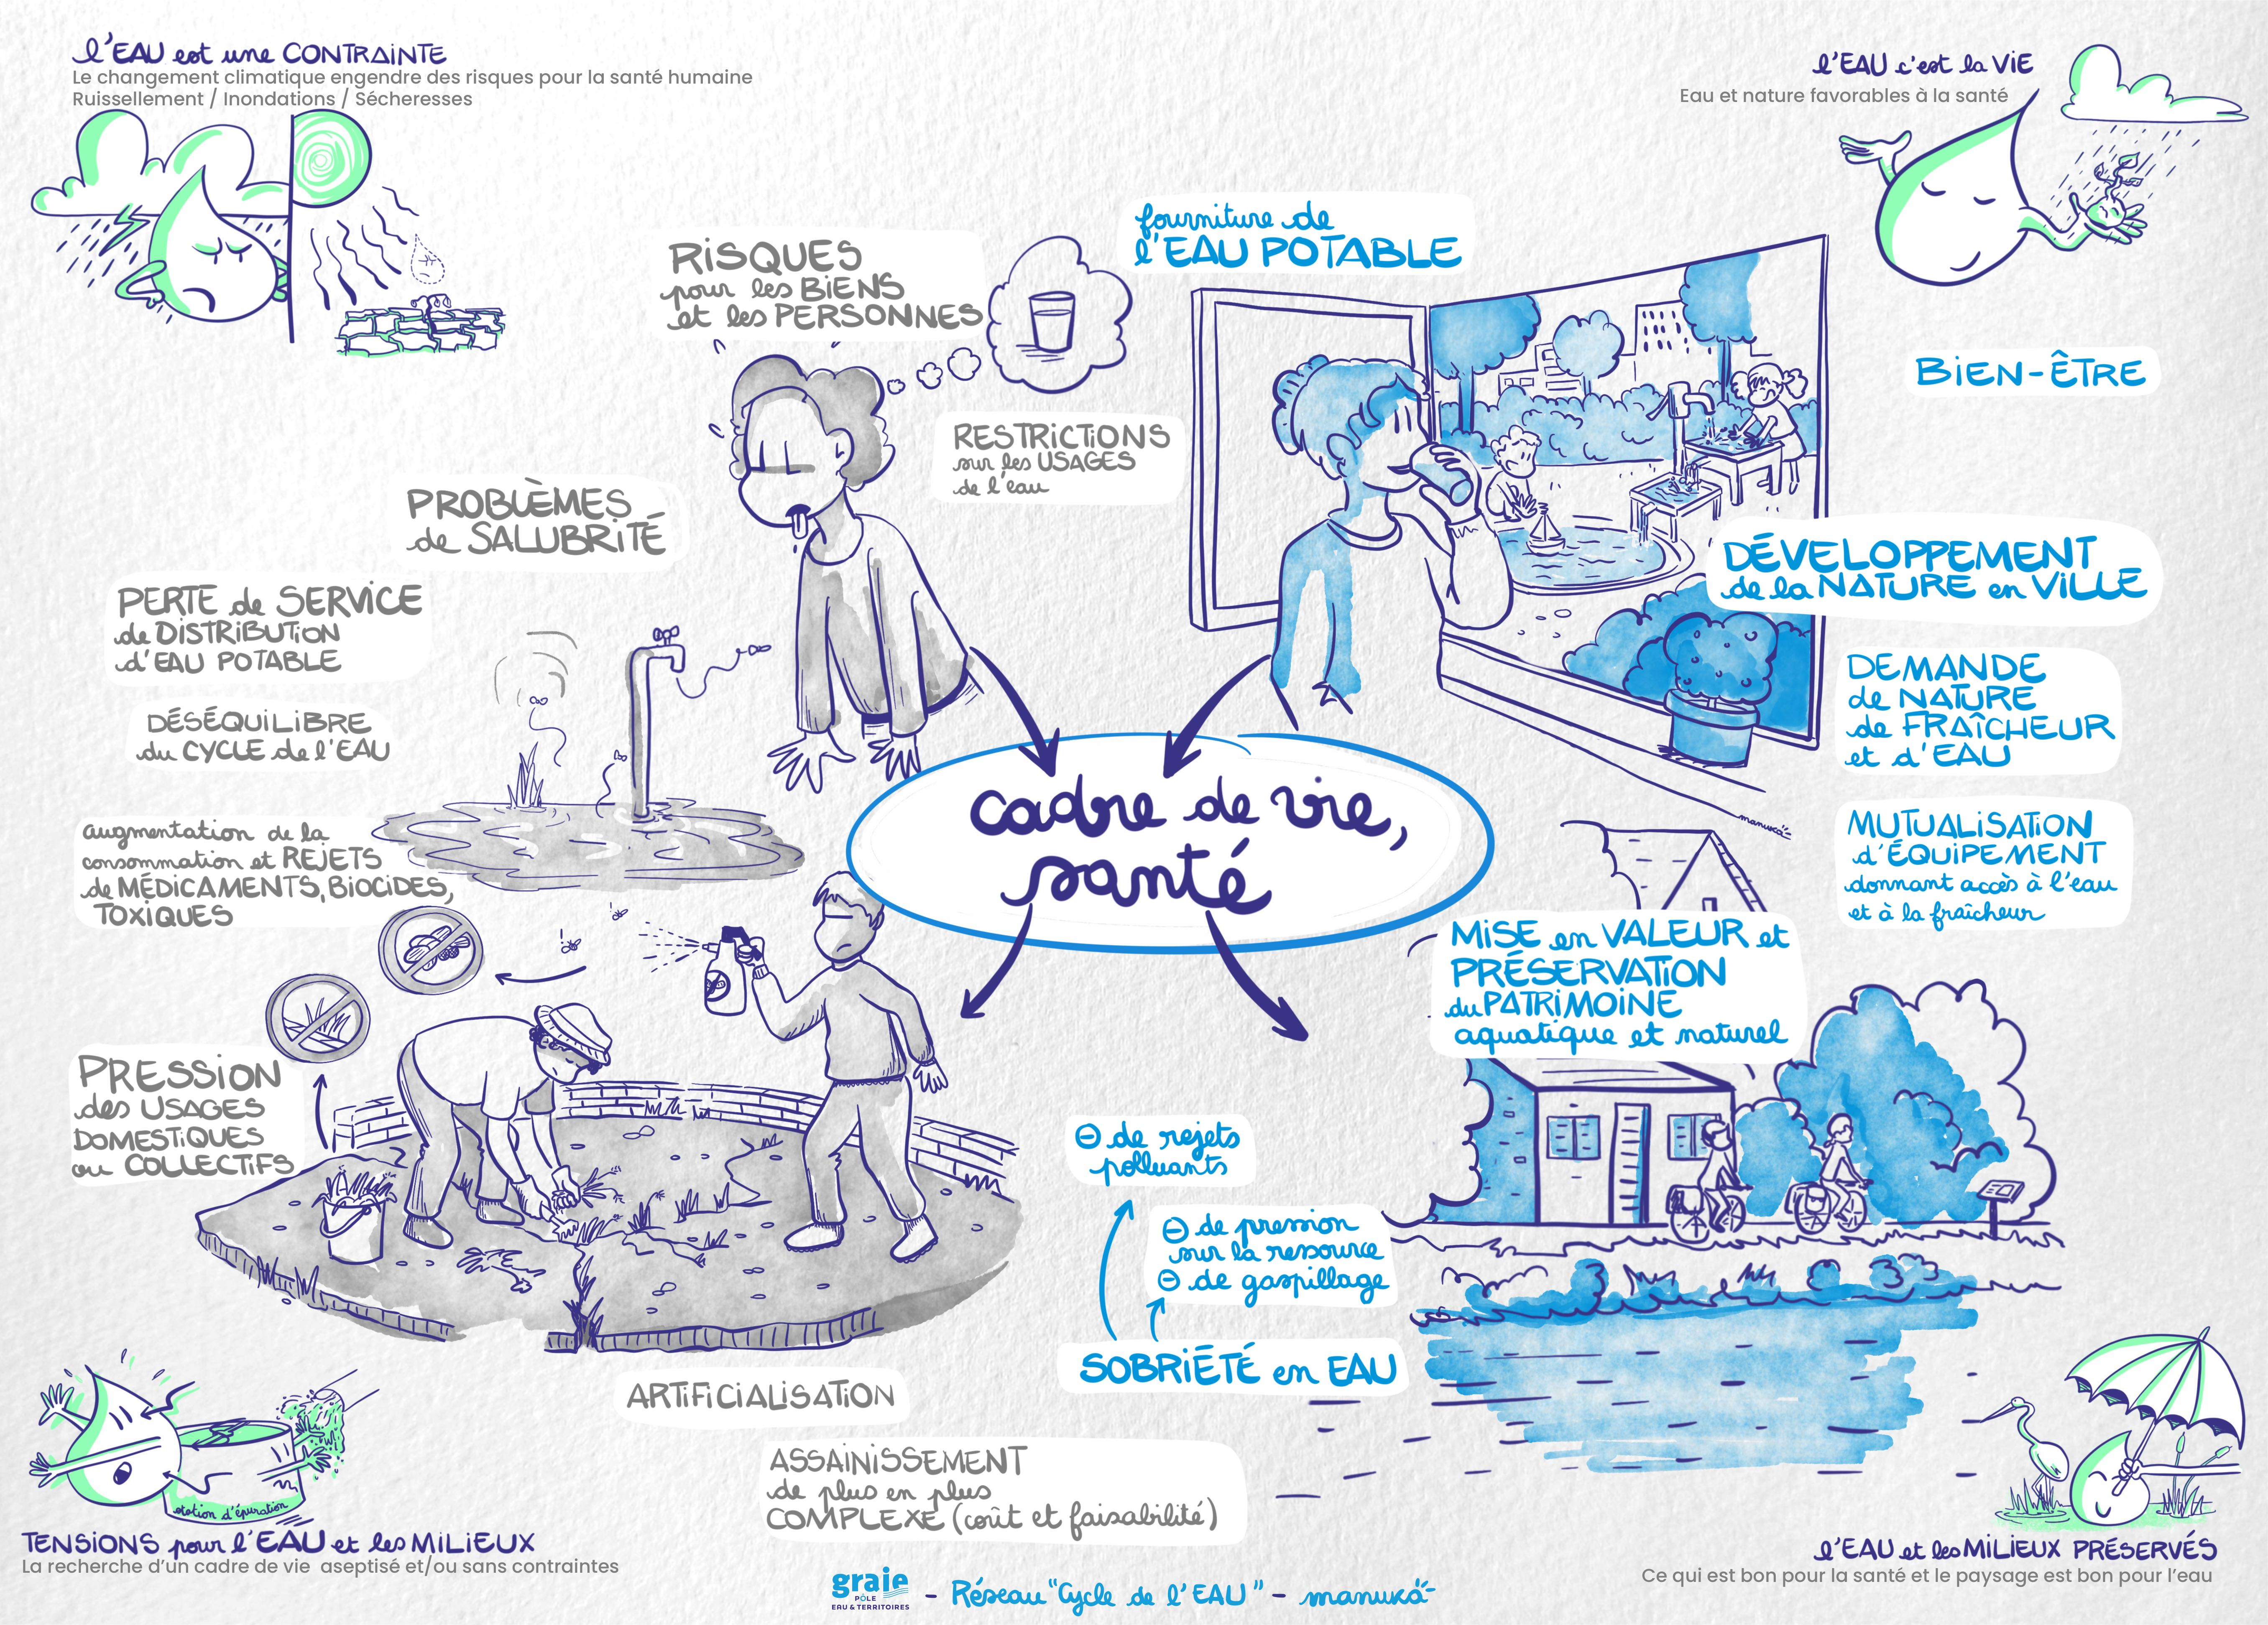 l'EAU est une CONTRAINTE
Le changement climatique engendre des risques pour la santé humaine
Ruissellement / Inondations / Sécheresses
l'EAU c'est la ViE
Eau et nature favorables à la santé
RiSQUES
pour les BiENS
et les PERSONNES
fourniture de
l'EAU POTABLE
BiEN-ÊTRE
RESTRiCTiONS
sur les USAGES
de l'eau
PROBLÈMES
de SALUBRiTÉ
DÉVELOPPEMENT
de la NATURE en ViLLE
PERTE de SERViCE
de DiSTRiBUTiON
d'EAU POTABLE
DEMANDE
de NATURE
de FRAÎCHEUR
et d'EAU
DÉSÉQUiLiBRE
du CYCLE de l'EAU
manuka
cadre de vie,
santé
MUTUALiSATiON
d'ÉQUiPEMENT
donnant accès à l'eau
et à la fraîcheur
augmentation de la
consommation et REJETS
de MÉDiCAMENTS, BiOCiDES,
TOXiQUES
MiSE en VALEUR et
PRÉSERVATiON
du PATRiMOiNE
aquatique et naturel
PRESSiON
des USAGES
DOMESTiQUES
ou COLLECTiFS
⊖ de rejets
polluants
⊖ de pression
sur la ressource
⊖ de gaspillage
SOBRiÉTÉ en EAU
ARTiFiCiALiSATiON
ASSAiNiSSEMENT
de plus en plus
COMPLEXE (coût et faisabilité)
station d'épuration
TENSiONS pour l'EAU et les MiLiEUX
La recherche d'un cadre de vie aseptisé et/ou sans contraintes
l'EAU et les MiLiEUX PRÉSERVÉS
Ce qui est bon pour la santé et le paysage est bon pour l'eau
graie
PÔLE
EAU & TERRITOIRES
- Réseau "Cycle de l'EAU" - manuka